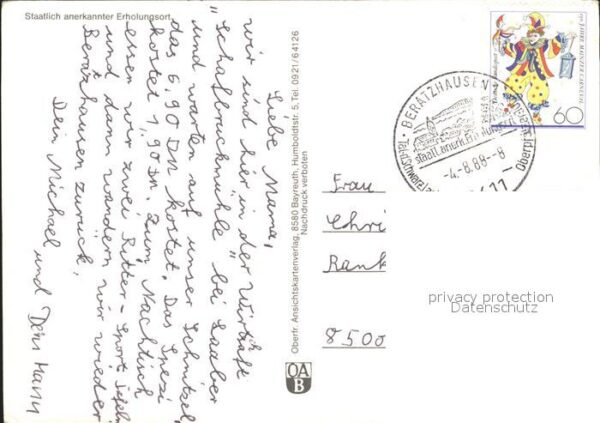 Staatlich anerkannter Erholungsort
Liebe Mama,
wir sind hier in der Wirtschaft
"Schafbruckmühle" bei Laaber
und warten auf unser Schnitzel,
das 6.90 DM kostet. Das Spezi
kostet 1.90 DM. Zum Nachtisch
essen wir zwei Ritter-Sport Tafeln
und dann wandern wir wieder
Beratzhausen zurück.
Dein Michael und Dein Hann
Oberfr. Ansichtskartenverlag, 8580 Bayreuth, Humboldtstr. 5, Tel. 0921/64126
Nachdruck verboten
OA
B
150 JAHRE MAINZER CARNEVAL
60
BERATZHAUSEN 1
staatl. anerk. Erholungsort
-4.-8.88-8
8411
Frau
Chri
Rank
8500
privacy protection
Datenschutz